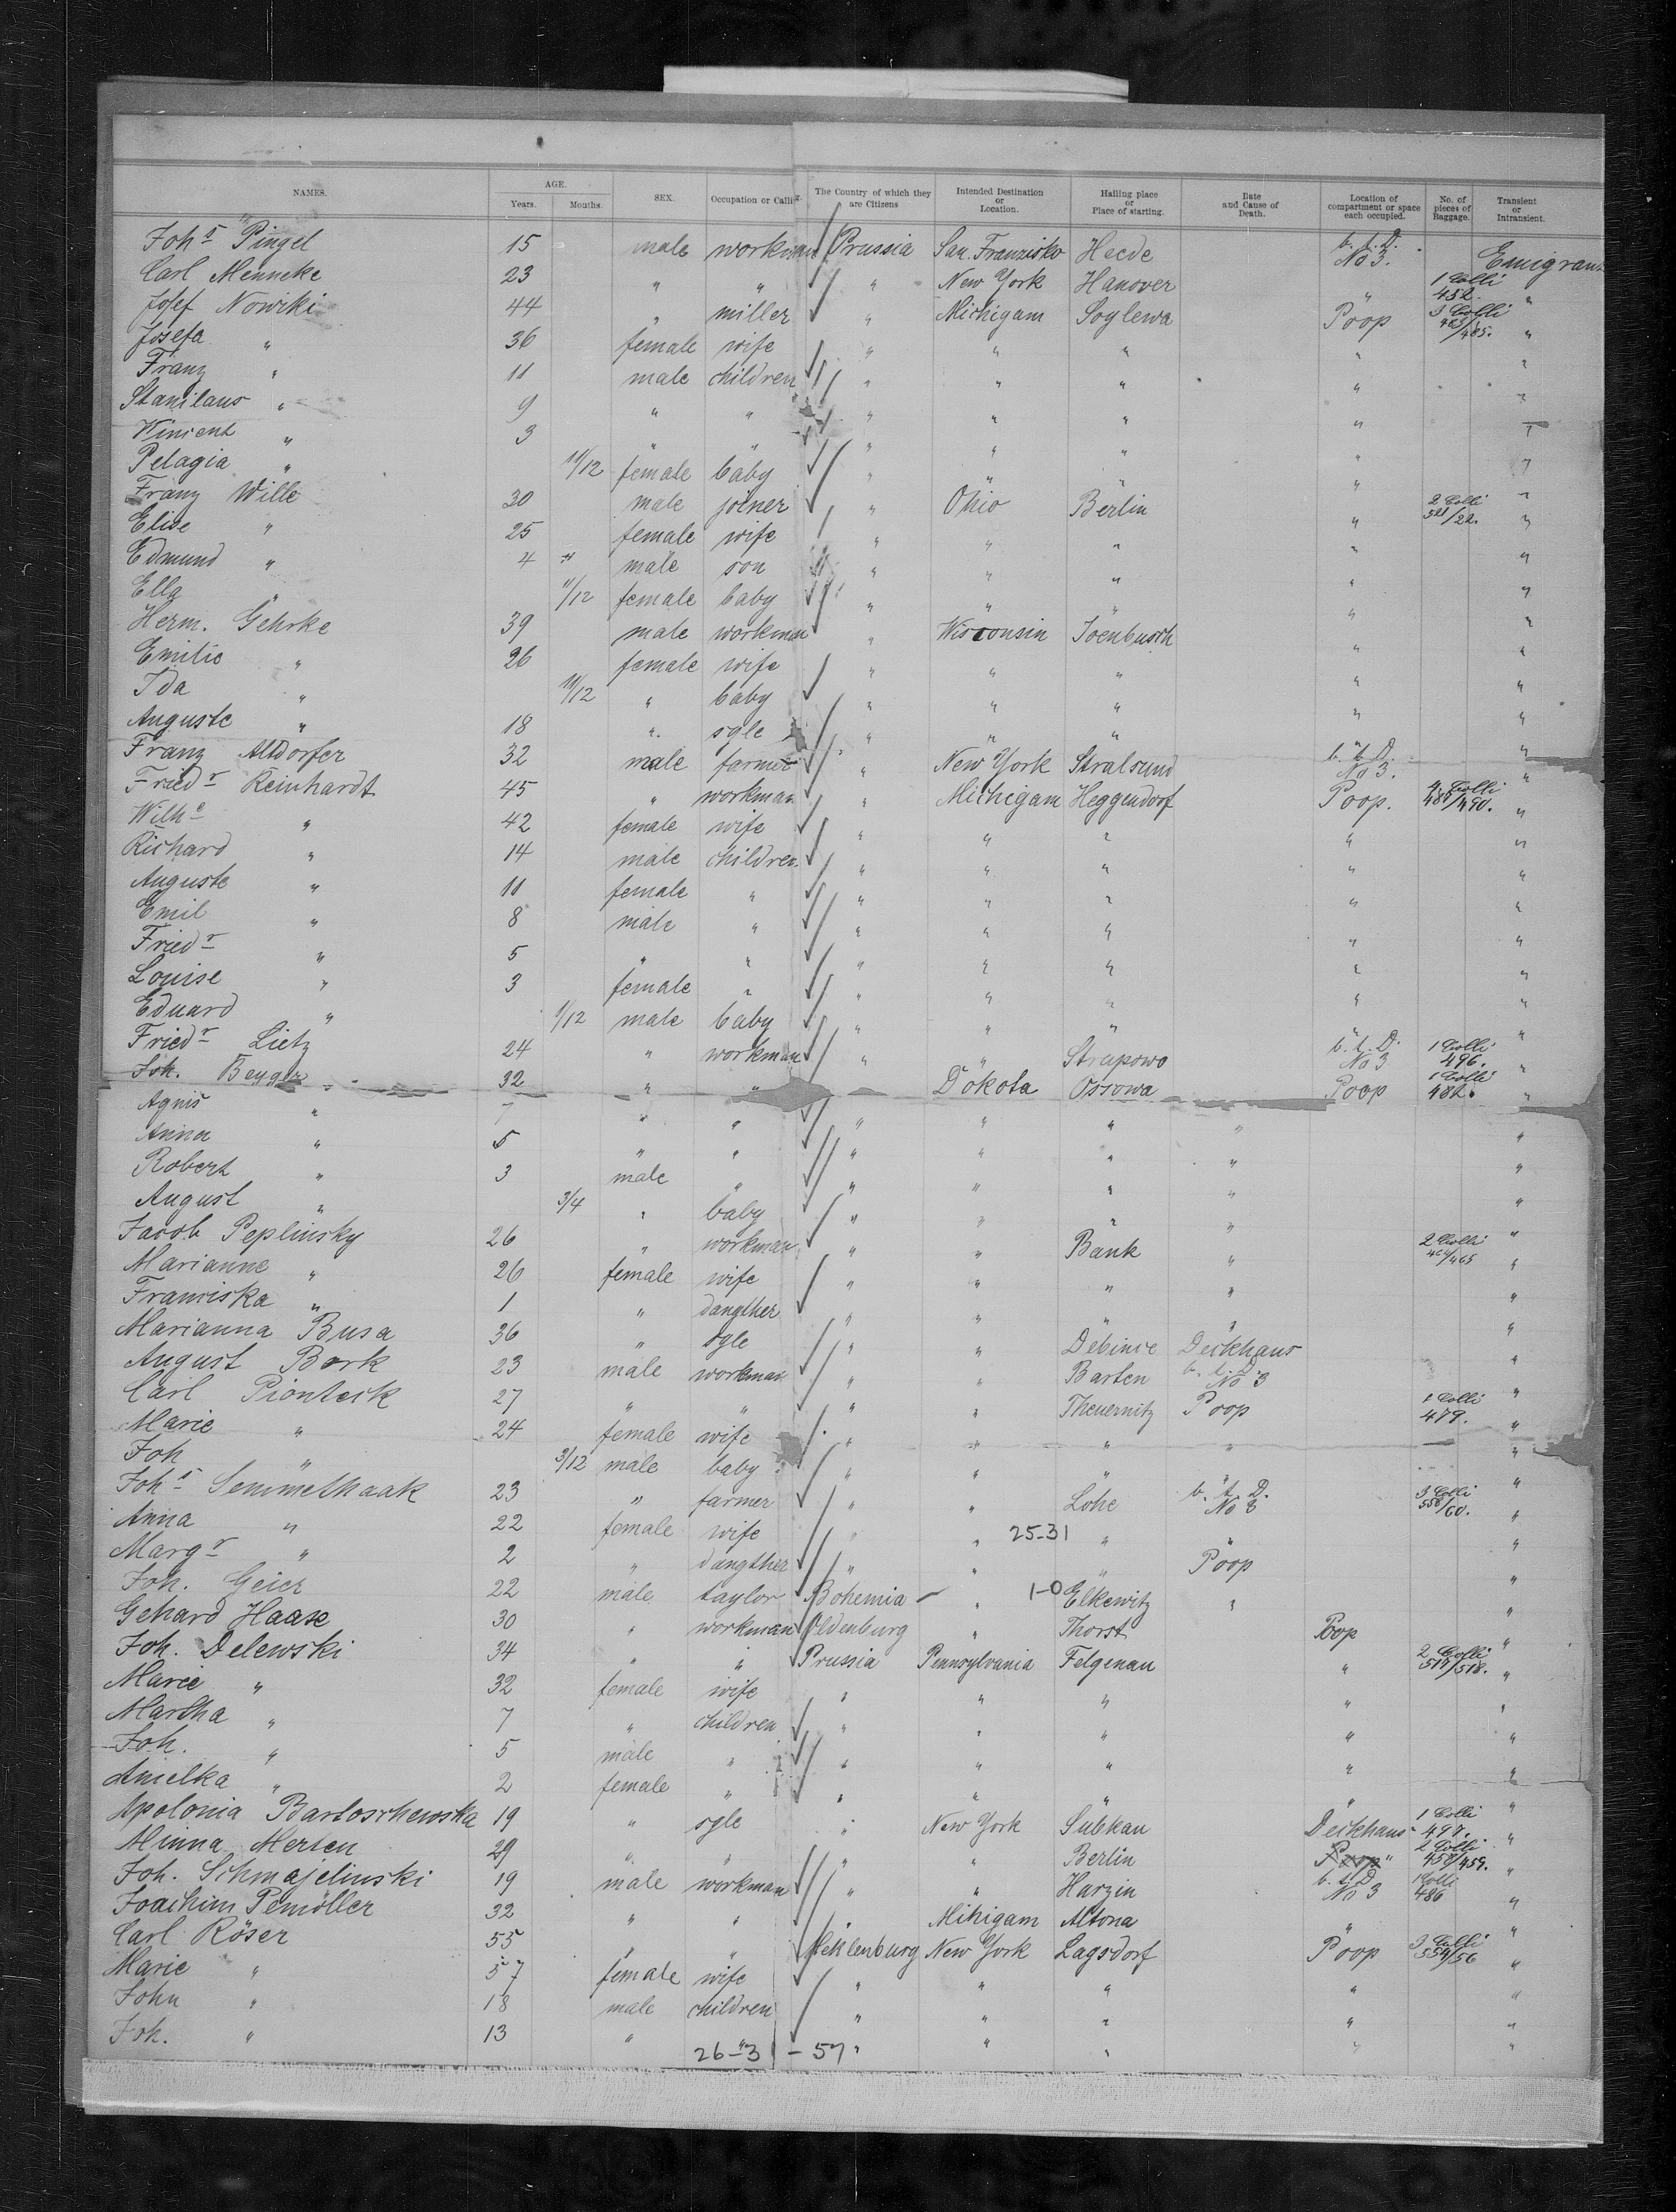 NAMES. AGE. Years. Months. SEX. Occupation or Calling. The Country of which they are Citizens Intended Destination or Location. Hailing place or Place of starting. Date and Cause of Death. Location of compartment or space each occupied. No. of pieces of Baggage. Transient or Intransient.
Johs Pingel 15 male workman Prussia San Franzisko Heede b. t. D. No 3. Emigrant
Carl Menneke 23 " " " New York Hanover " 1 Colli 452. "
Josef Nowiki 44 " miller " Michigam Soylewa Poop 3 Colli 463/465. "
Josefa " 36 female wife " " " " "
Franz " 11 male children " " " " "
Stanilaus " 9 " " " " " " "
Vinsent " 3 " " " " " " "
Pelagia " 11/12 female baby " " " " "
Franz Wille 30 male joiner " Ohio Berlin " 2 Colli 521/22. "
Elise " 25 female wife " " " " "
Edmund " 4 " male son " " " " "
Ella " 11/12 female baby " " " " "
Herm. Gehrke 39 male workman " Wisconsin Joenbusch " "
Emilie " 26 female wife " " " " "
Ida " 11/12 " baby " " " " "
Auguste " 18 " sgle " " " " "
Franz Altdorfer 32 male farmer " New York Stralsund b. t. D. No 3. "
Friedr Reinhardt 45 " workman " Michigam Heggendorf Poop. 4 Colli 487/490. "
Wilhe " 42 female wife " " " " "
Richard " 14 male children " " " " "
Auguste " 11 female " " " " " "
Emil " 8 male " " " " " "
Friedr " 5 " " " " " " "
Louise " 3 female " " " " " "
Eduard " 1/12 male baby " " " " "
Friedr Lietz 24 " workman " " Strupowo b. t. D. No 3 1 Colli 496. "
Joh. Beyger 32 " " Dokota Ossowa Poop 1 Colli 482. "
Agnis " 7 " " " " " " "
Anna " 5 " " " " " " "
Robert " 3 male " " " " " "
August " 3/4 " baby " " " " "
Jacob Peplinsky 26 " workman " " Bank " 2 Colli 464/465 "
Marianne " 26 female wife " " " " "
Franciska " 1 " dangther " " " " "
Marianna Busa 36 " sgle " " Debince Deckhaus "
August Bork 23 male workman " " Barten b. t. D. No 3 "
Carl Pionteck 27 " " " " Theuernitz Poop 1 Colli 479. "
Marie " 24 female wife " " " " "
Joh " 3/12 male baby " " " " "
Johs Semmelhaak 23 " farmer " " Lohe b. t. D. No 3 3 Colli 558/60. "
Anna " 22 female wife " " 25-31 " " "
Margr " 2 " dangther " " " Poop "
Joh. Geier 22 male taylor Bohemia - " 1-0 Elkewitz " "
Gehard Haase 30 " workman Oldenburg " Thorst Poop "
Joh. Delewski 34 " " Prussia Pennsylvania Felgenau " 2 Colli 517/518. "
Marie " 32 female wife " " " " "
Martha " 7 " children " " " " "
Joh. " 5 male " " " " " "
Anielka " 2 female " " " " " "
Apolonia Bartoschewska 19 " sgle " New York Subkau Deckhaus 1 Colli 497. "
Minna Merten 29 " " " " Berlin " 2 Colli 458/459. "
Joh. Schmajelinski 19 male workman " " Harzin b. t. D. No 3 1 Colli 486 "
Joachim Pemöller 32 " " " Mihigam Altona " "
Carl Röser 55 " " Meklenburg New York Lagsdorf Poop 3 Colli 554/56 "
Marie " 57 female wife " " " " "
John " 18 male children " " " " "
Joh. " 13 " " " " " " "
26-31-57